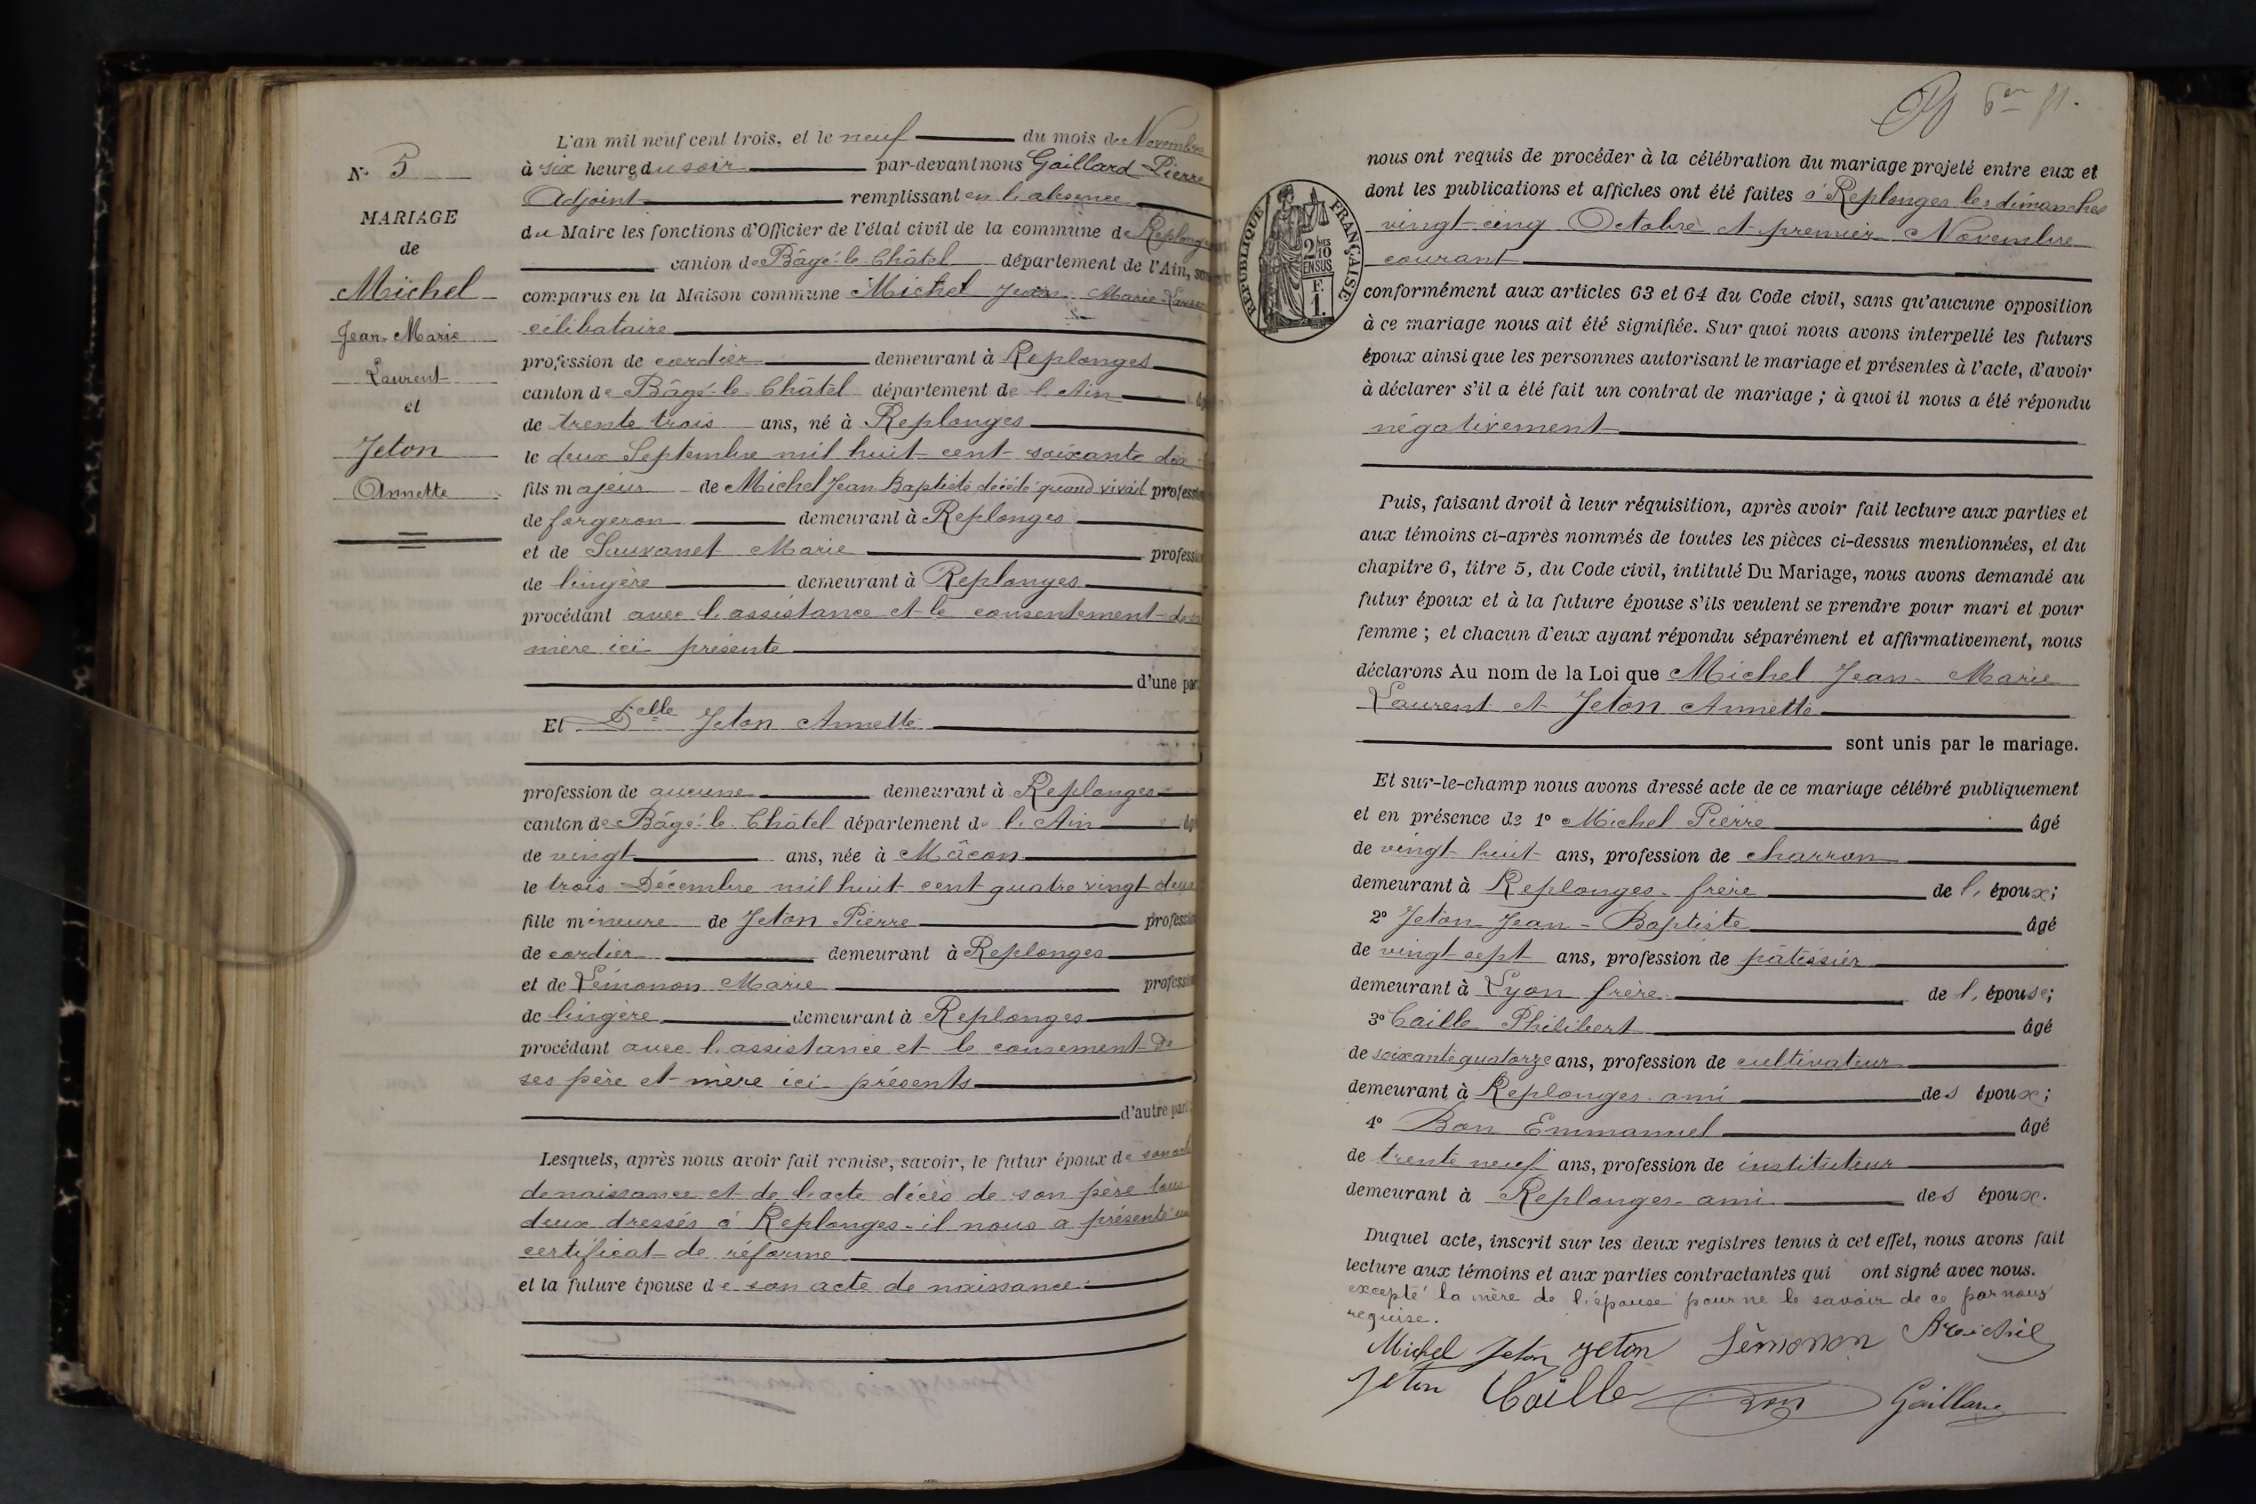 N° 5
MARIAGE
de
Michel
Jean-Marie
Laurent
et
Jeton
Annette
L'an mil neuf cent trois, et le neuf du mois de Novembre
à six heures du soir par-devant nous Gaillard Pierre
Adjoint remplissant en l'absence
du Maire les fonctions d'Officier de l'état civil de la commune de Replonges
canton de Bâgé-le-Châtel département de l'Ain, sont
comparus en la Maison commune Michel Jean-Marie Laurent
célibataire
profession de cordier demeurant à Replonges
canton de Bâgé-le-Châtel département de l'Ain âgé
de trente trois ans, né à Replonges
le deux Septembre mil huit cent soixante dix
fils majeur de Michel Jean Baptiste décédé quand vivait profession
de forgeron demeurant à Replonges
et de Sauvanet Marie profession
de lingère demeurant à Replonges
procédant avec l'assistance et le consentement de sa
mère ici présente
d'une part
Et Delle Jeton Annette
profession de aucune demeurant à Replonges
canton de Bâgé-le-Châtel département de l'Ain âgé
de vingt ans, née à Mâcon
le trois Décembre mil huit cent quatre vingt deux
fille mineure de Jeton Pierre profession
de cordier demeurant à Replonges
et de Lémonon Marie profession
de lingère demeurant à Replonges
procédant avec l'assistance et le consement de
ses père et mère ici présents
d'autre part
Lesquels, après nous avoir fait remise, savoir, le futur époux de son acte
de naissance et de l'acte décès de son père tous
deux dressés à Replonges - il nous a présenté un
certificat de réforme
et la future épouse de son acte de naissance
6en 11.
RÉPUBLIQUE FRANÇAISE
2/10 EN SUS
F.
1.
nous ont requis de procéder à la célébration du mariage projeté entre eux et
dont les publications et affiches ont été faites à Replonges les dimanches
vingt-cinq Octobre et premier Novembre
courant
conformément aux articles 63 et 64 du Code civil, sans qu'aucune opposition
à ce mariage nous ait été signifiée. Sur quoi nous avons interpellé les futurs
époux ainsi que les personnes autorisant le mariage et présentes à l'acte, d'avoir
à déclarer s'il a été fait un contrat de mariage ; à quoi il nous a été répondu
négativement
Puis, faisant droit à leur réquisition, après avoir fait lecture aux parties et
aux témoins ci-après nommés de toutes les pièces ci-dessus mentionnées, et du
chapitre 6, titre 5, du Code civil, intitulé Du Mariage, nous avons demandé au
futur époux et à la future épouse s'ils veulent se prendre pour mari et pour
femme ; et chacun d'eux ayant répondu séparément et affirmativement, nous
déclarons Au nom de la Loi que Michel Jean-Marie
Laurent et Jeton Annette
sont unis par le mariage.
Et sur-le-champ nous avons dressé acte de ce mariage célébré publiquement
et en présence de 1° Michel Pierre âgé
de vingt-huit ans, profession de charron
demeurant à Replonges - frère de l'époux;
2° Jeton Jean-Baptiste âgé
de vingt sept ans, profession de pâtissier
demeurant à Lyon frère de l'épouse;
3° Caille Philibert âgé
de soixante quatorze ans, profession de cultivateur
demeurant à Replonges - ami des époux;
4° Bon Emmanuel âgé
de trente neuf ans, profession de instituteur
demeurant à Replonges - ami des époux.
Duquel acte, inscrit sur les deux registres tenus à cet effet, nous avons fait
lecture aux témoins et aux parties contractantes qui ont signé avec nous.
excepté la mère de l'épouse pour ne le savoir de ce par nous
requise.
Michel Jeton Jeton Lémonon Michel
Jeton Caille Bon Gaillard